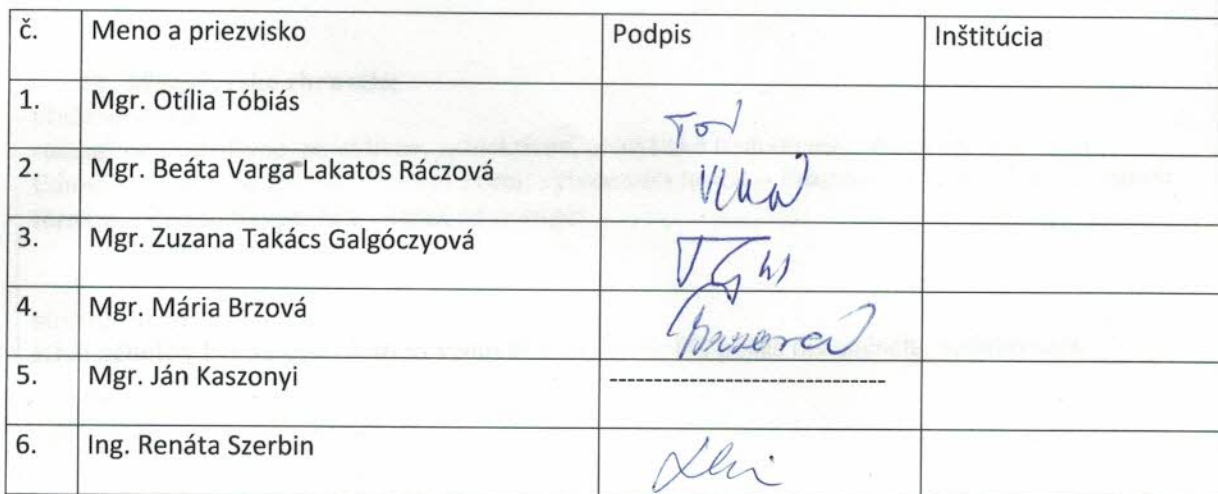 č. Meno a priezvisko Podpis Inštitúcia
1. Mgr. Otília Tóbiás
2. Mgr. Beáta Varga Lakatos Ráczová
3. Mgr. Zuzana Takács Galgóczyová
4. Mgr. Mária Brzová Brzová
5. Mgr. Ján Kaszonyi ------------------------------
6. Ing. Renáta Szerbin